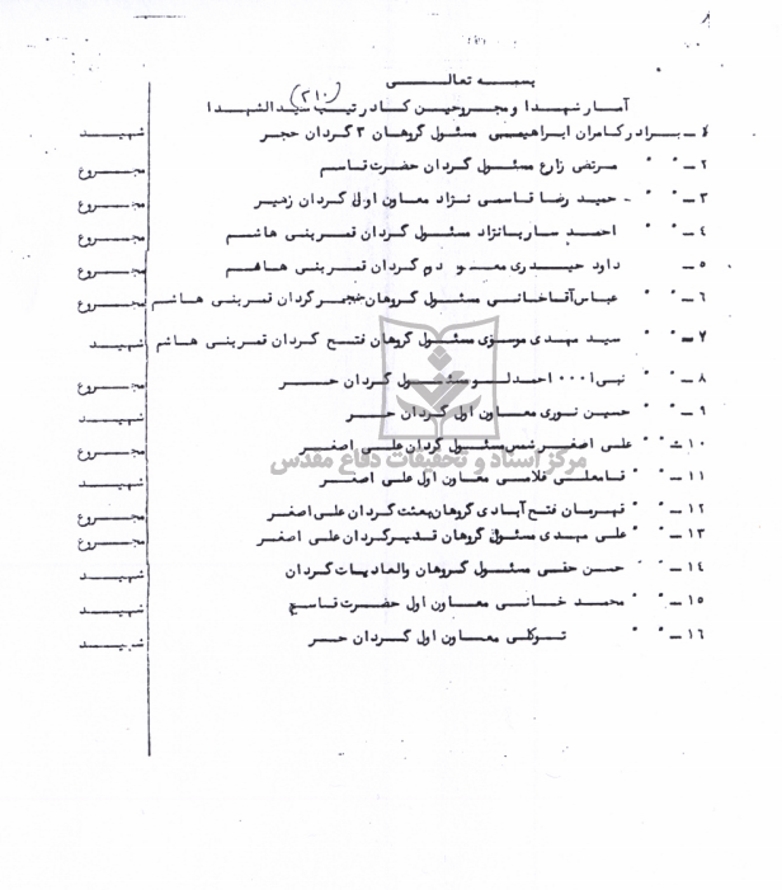 ۸
بسمه تعالی
(۲۱۰)
آمار شهدا و مجروحین کادر تیپ سیدالشهدا
۱ــ برادر کامران ابراهیمی مسئول گروهان ۳ گردان حجر شهید
۲ــ " " مرتضی زارع مسئول گردان حضرت قاسم مجروع
۳ــ " " حمید رضا قاسمی نژاد معاون اول گردان زهیر مجروع
۴ــ " " احمد ساربانژاد مسئول گردان قمر بنی هاشم مجروع
۵ــ داود حیدری معاو دوم گردان قمر بنی هاهم مجروع
۶ــ " " عباس آقاخانی مسئول گروهان خنجر گردان قمر بنی هاشم مجروع
۷ــ " " سید مهدی موسوی مسئول گروهان فتح گردان قمر بنی هاشم شهید
۸ــ " " نبی ا۰۰۰ احمدلو مسئول گردان حر مجروع
۹ــ " " حسین نوری معاون اول گردان حر شهید
۱۰ــ " " علی اصغر شمس مسئول گردان علی اصغر مجروع
۱۱ــ " " قامعلی فلاحی معاون اول علی اصغر شهید
۱۲ــ " " قهرمان فتح آبادی گروهان بعثت گردان علی اصغر مجروع
۱۳ــ " " علی مهدی مسئول گروهان قدیر گردان علی اصغر مجروع
۱۴ــ " " حسن حقی مسئول گروهان والعادیات گردان شهید
۱۵ــ " " محمد خانی معاون اول حضرت قاسم شهید
۱۶ــ " " توکلی معاون اول گردان حر شهید
مرکز اسناد و تحقیقات دفاع مقدس